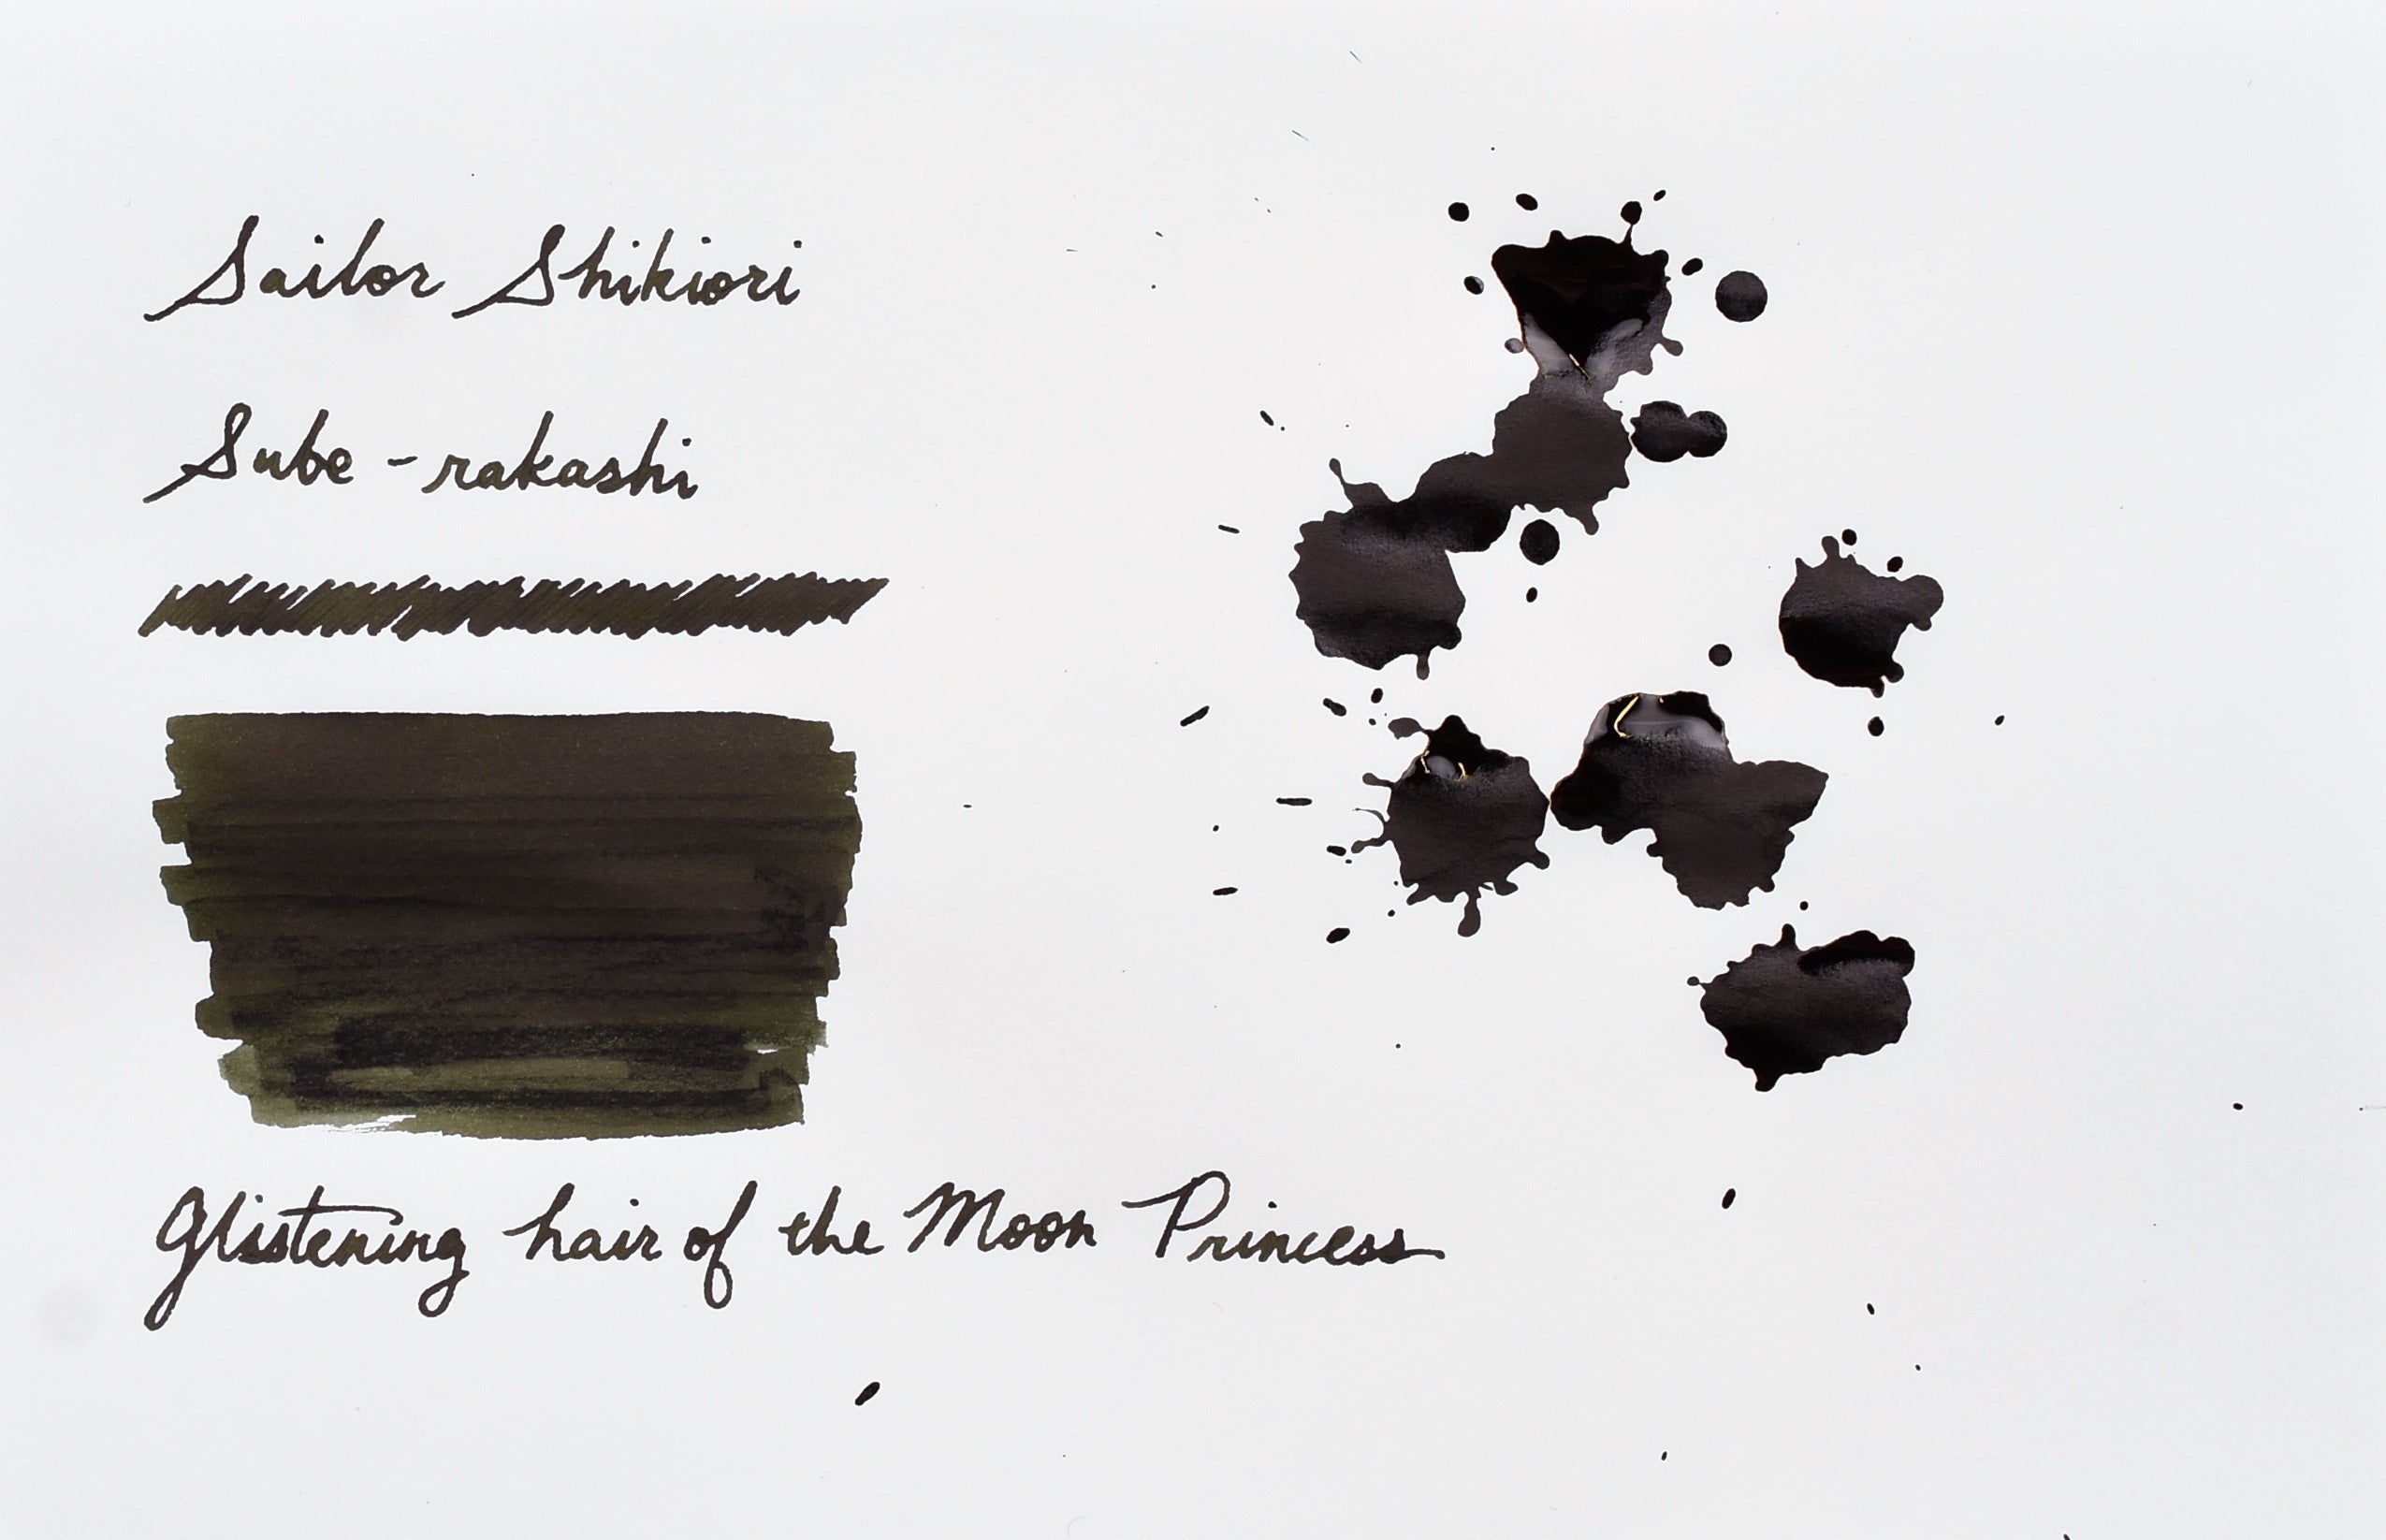 Sailor Shikiori
Sube-rakashi
Glistening hair of the Moon Princess